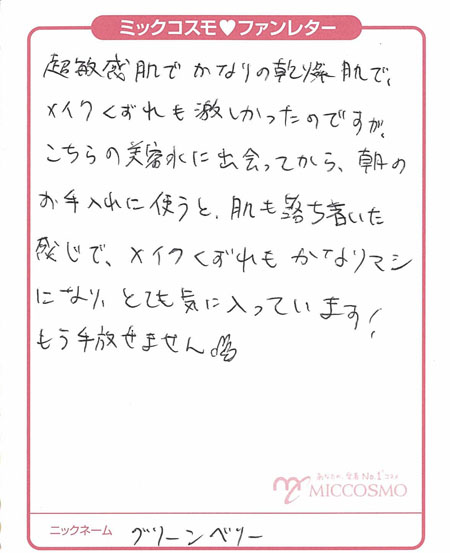 ミックコスモ♥ファンレター
超敏感肌でかなりの乾燥肌で、
メイクくずれも激しかったのですが、
こちらの美容水に出会ってから、朝の
お手入れに使うと、肌も落ち着いた
感じで、メイクくずれもかなりマシ
になり、とても気に入っています!
もう手放せません
MICCOSMO
ニックネーム グリーンベリー